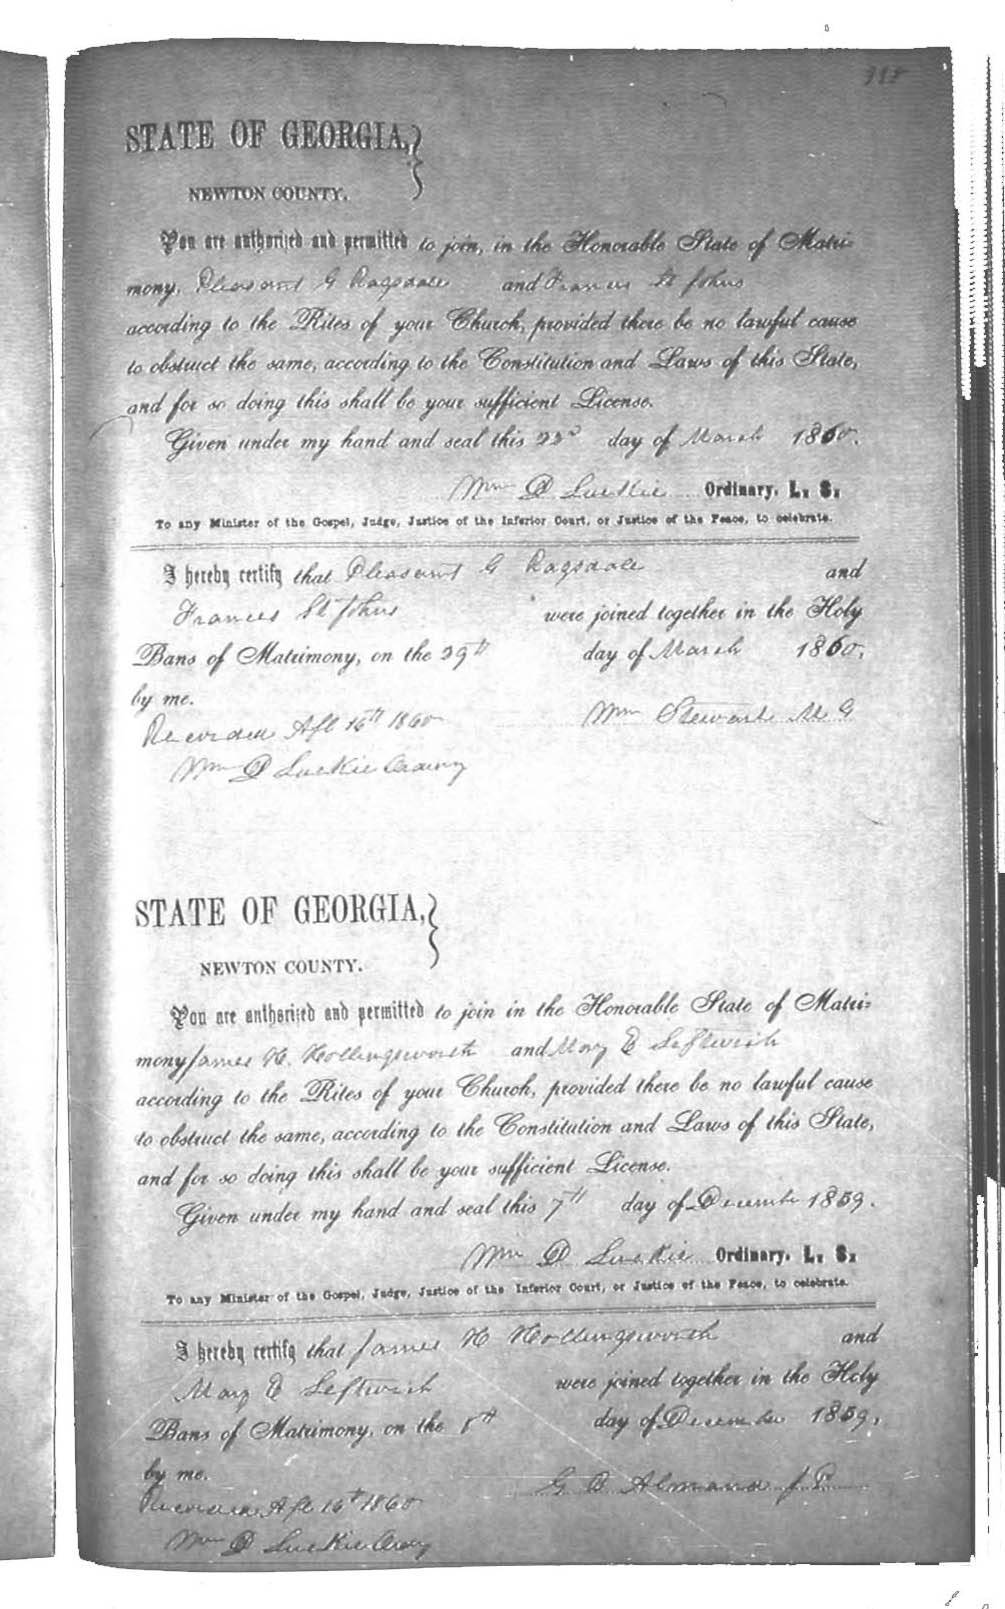 STATE OF GEORGIA,
NEWTON COUNTY.
You are authorized and permitted to join, in the Honorable State of Matri-
mony, Pleasant G Ragsdale and Frances St Johns
according to the Rites of your Church, provided there be no lawful cause
to obstruct the same, according to the Constitution and Laws of this State,
and for so doing this shall be your sufficient License.
Given under my hand and seal this 22d day of March 1860.
Wm D Luckie Ordinary. L. S.
To any Minister of the Gospel, Judge, Justice of the Inferior Court, or Justice of the Peace, to celebrate.
I hereby certify that Pleasant G Ragsdale and
Frances St Johns were joined together in the Holy
Bans of Matrimony, on the 29th day of March 1860,
by me.
Wm Stewart M G
Recorded Apl 16th 1860
Wm D Luckie Ordny
STATE OF GEORGIA,
NEWTON COUNTY.
You are authorized and permitted to join in the Honorable State of Matri-
mony James H. Hollingsworth and Mary E Leftwich
according to the Rites of your Church, provided there be no lawful cause
to obstruct the same, according to the Constitution and Laws of this State,
and for so doing this shall be your sufficient License.
Given under my hand and seal this 7th day of December 1859.
Wm D Luckie Ordinary. L. S.
To any Minister of the Gospel, Judge, Justice of the Inferior Court, or Justice of the Peace, to celebrate.
I hereby certify that James H Hollingsworth and
Mary E Leftwich were joined together in the Holy
Bans of Matrimony, on the 8th day of December 1859,
by me.
G D Almand J P
Recorded Apl 16th 1860
Wm D Luckie Ordny